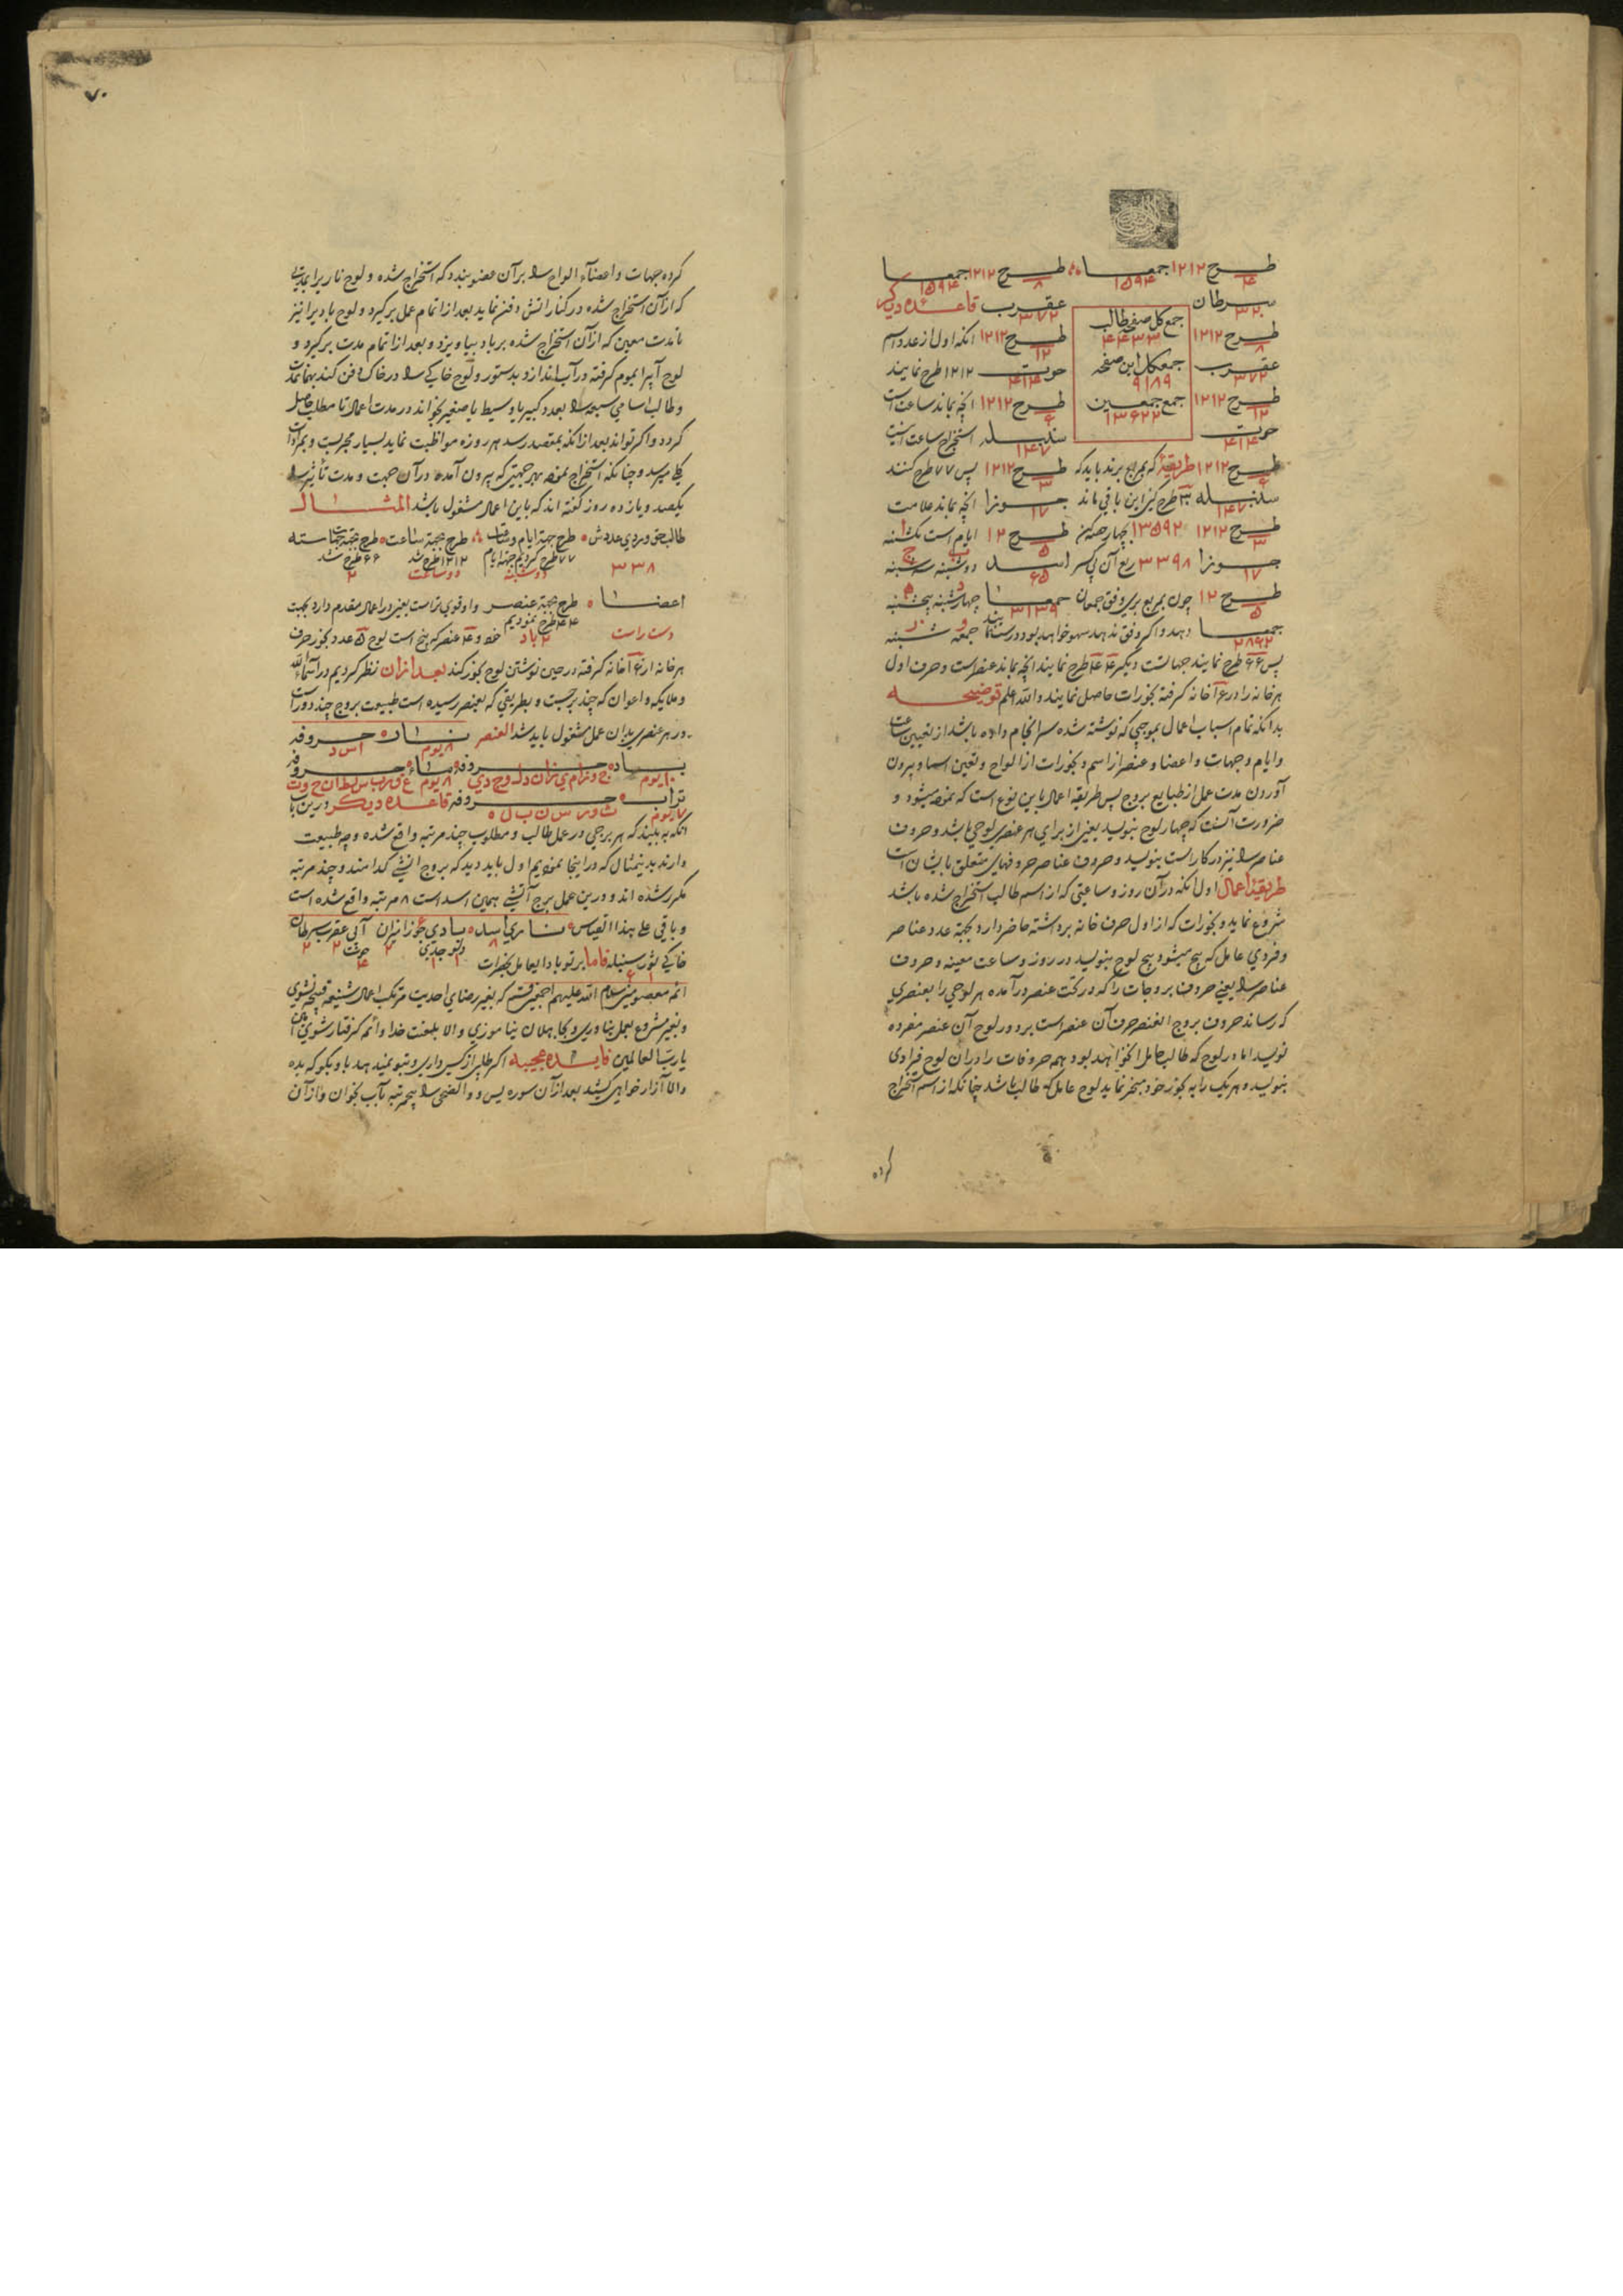 طرح ۱۲۱۲ جمعا طرح ۱۲۱۲ جمعا
۴ ۱۵۹۴ ۸ ۱۵۹۴
سرطان عقرب قاعده دیکر
۳۲ ۳۷۲
جمع کل صفحه طالب
۴۴۳۳
طرح ۱۲۱۲ طرح ۱۲۱۲ انکه اول از عدد اسم
۸ ۱۲
عقرب جمع کل این صفحه حوت ۱۲۱۲ طرح نمایند
۳۷۲ ۹۱۸۹ ۴۱۴
طرح ۱۲۱۲ جمع جمعین طرح ۱۲۱۲ انچه بماند ساعت است
۱۲ ۱۳۶۲۲ ۶
حوت سنبله استخراج ساعت اینست
۴۱۴ ۱۴۷
طرح ۱۲۱۲ طریقه که بمربع برند باید که طرح ۱۲۱۲ پس ۷۷ طرح کنند
۶ ۳
سنبله ۳۰ طرح کنی این باقی ماند جوزا انچه بماند علامت
۱۴۷ ۱۷
طرح ۱۲۱۲ ۱۳۵۹۲ چهار حصه کن طرح ۱۲ ایام است یکشنبه
۳ ۵
جوزا ۳۳۹۸ ربع آن بی کسر اسد دوشنبه سه شنبه
۱۷ ۶۵
طرح ۱۲ چون بمربع بری وفق جمعان جمعا چهارشنبه پنجشنبه
۵ ۳۱۳۹
جمعا دهد واکر وفق ندهد سهو خواهد بود درست جمعه شنبه
۲۸۶۲
پس ۶۶ طرح نمایند جهاتست دیکر ۴۴ طرح نمایند انچه بماند عنصر است و حرف اول
هر خانه را در خانه کرفته بخورات حاصل نمایند والله اعلم توضیحه
بدانکه تمام اسباب اعمال بموجبی که نوشته شده سرانجام داده باشد از تعیین ساعت
و ایام و جهات و اعضا و عنصر از اسم و بخورات از الواح و تعین اسما و بیرون
آوردن مدت عمل از طبایع بروج پس طریقه اعمال باین نوع است که نموده میشود و
ضرورت آنست که چهار لوح بنویسد یعنی از برای هر عنصری لوحی باشد و حروف
عناصر را نیز در کار است بنویسد و حروف عناصر حروفهای متعلق بایشان است
طریقه اعمال اول انکه در آن روز و ساعتی که از اسم طالب استخراج شده باشد
شروع نماید و بخورات که از اول حرف خانه برداشته حاضر دارد بجهة عدد عناصر
و فردی عامل که پنج میشود پنج لوح بنویسد در روز و ساعت معینه و حروف
عناصر را یعنی حروف بروجات را که در تحت عنصر درآمده هر لوحی را بعنصری
که رساند حروف بروج العنصر حرف آن عنصر است بر دور لوح آن عنصر مفرده
نویسد اما در لوح که طالب حامل خواهد بود همه حروفات را در آن لوح فرادی
بنویسد و هر یک را به بخور خود مبخر نماید لوح عامل که طالب باشد چنانکه از اسم استخراج
کرده
۷۰
کرده جهات و اعضاء الواح را بر آن عضو بندد که استخراج شده و لوح نار را بمدتی
که از آن استخراج شده در کنار اتش دفن نماید بعد از اتمام عمل برکیرد و لوح باد را نیز
تا مدت معین که از آن استخراج شده بر باد بیاویزد و بعد از اتمام مدت برکیرد و
لوح آب را بموم کرفته در آب اندازد بدستور و لوح خاکی را در خاک دفن کند بهمان مدت
و طالب اسامی سبعه را بعدد کبیر یا وسیط یا صغیر بخواند در مدت اعمال تا مطلب حاصل
کردد و اکر تواند بعد از انکه بمقصد رسد هر روزه مواظبت نماید بسیار مجربست و بمرادات
کلی میرسد و چنانکه استخراج نموده بهر جهتی که بیرون آمده در آن جهت و مدت تأثیر را
یکصد و یازده روز کفته اند که باین اعمال مشغول باشد المثال
طالب حق وردی عددش طرح جهة ایام و وقت طرح جهة ساعت طرح جهة جهات سته
۳۳۸ ۷۷ طرح کردیم جهة ایام ۱۲۱۲ طرح شد ۶۶ طرح شد
دوشنبه دو ساعت ۲
اعضا طرح جهة عنصر و او قوی تر است یعنی در اعمال مقدم دارد بجهت
دست راست ۴۴ طرح نمودیم ۲ باد خود و ۴ عنصر که پنج است لوح ۵ عدد بخور حرف
هر خانه از خانه کرفته در حین نوشتن لوح بخور کند بعد ازان نظر کردیم در اسماء الله
و ملایکه و اعوان که چند برجست و بطریقی که بعنصر رسیده است طبیعت بروج چند دور است
در هر عنصری بدان عمل مشغول باید شد العنصر نار حروفه
۸ یوم ا س د
باد حروفه ماء حروفه
۱۰ یوم ج و ز ا م ی ز ا ن د ل و ج د ی ۸ یوم ع ق ر ب س ر ط ا ن ح و ت
تراب حروفه قاعده دیکر در این باب
۷ یوم ث و ر س ن ب ل ه
انکه به بینند که هر برجی در عمل طالب و مطلوب چند مرتبه واقع شده و چه طبیعت
دارند بدینمثال که در اینجا نمودیم اول باید دید که بروج اتشی کدامند و چند مرتبه
مکرر شده اند و درین عمل برج آتشی همین اسد است ۸ مرتبه واقع شده است
و باقی علی هذا القیاس ناری اسد بادی جوزا میزان آبی عقرب سرطان
۸ ۲ دلو جدی حوت ۲ ۲
خاکی ثور سنبله فاما بر تو باد ایعامل بحضرات
ائمه معصومین سلام الله علیهم اجمعین قسم که بغیر رضای احدیت مرتکب اعمال شنیعه قبیحه نشوی
و بغیر مشروع بعمل نیاوری و بجاهلان نیاموزی والا بلعنت خدا و ائمه کرفتار شوی آمین
یا رب العالمین فایده عجیبه اکر طلبی از کسی داری و بتو نمیدهد باو بکو که بده
والا آزار خواهی کشید بعد از آن سوره یس و والضحی را پنج مرتبه بآب بخوان و از آن